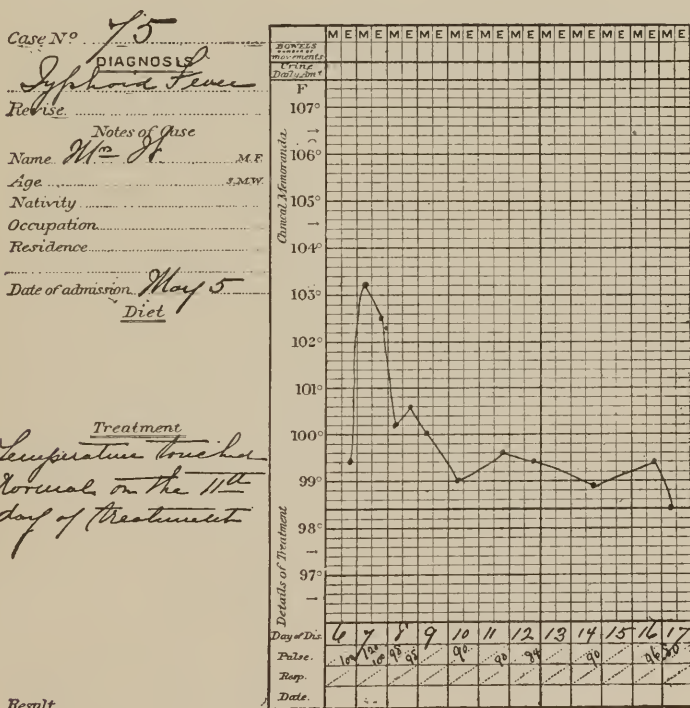 Case Nº 75
DIAGNOSIS
Typhoid Fever
Revise
Notes of Case
Name Mr H. M.F.
Age S.M.W.
Nativity
Occupation
Residence
Date of admission May 5
Diet
Treatment
Temperature touched
Normal on the 11th
day of treatment
Result
M E M E M E M E M E M E M E M E M E M E M E M E
BOWELS
NUMBER OF
movements
Urine
Daily Amt
Clinical Memoranda
Details of Treatment
F
107°
106°
105°
104°
103°
102°
101°
100°
99°
98°
97°
Day of Dis. 6 7 8 9 10 11 12 13 14 15 16 17
Pulse. 100 120 100 98 95 90 90 84 90 96 80
Resp.
Date.